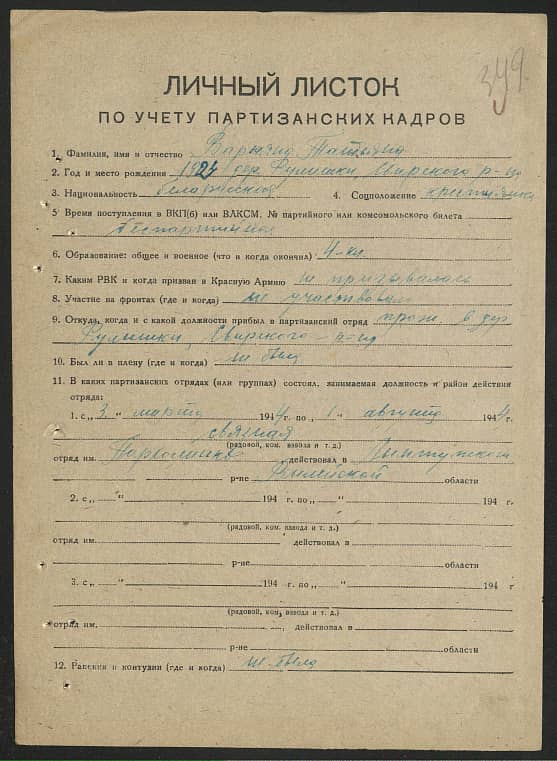 349.
ЛИЧНЫЙ ЛИСТОК
ПО УЧЕТУ ПАРТИЗАНСКИХ КАДРОВ
1. Фамилия, имя и отчество Татьяна
2. Год и место рождения 1924 дер. Свирского р-на
3. Национальность белорусская 4. Соцположение крестьянка
5 Время поступления в ВКП(б) или ВЛКСМ. № партийного или комсомольского билета
беспартийная
6. Образование: общее и военное (что и когда окончил) 4-кл
7. Каким РВК и когда призван в Красную Армию не призывалась
8. Участие на фронтах (где и когда) не участвовал
9. Откуда, когда и с какой должности прибыл в партизанский отряд прож. в дер
Свирского р-на
10. Был ли в плену (где и когда) не была
11. В каких партизанских отрядах (или группах) состоял, занимаемая должность и район действия
отряда:
1. с „3„ марта 1944 г. по „1" августа 1944 г.
связная
(рядовой, ком. взвода и т. д.)
отряд им. Пархоменко действовал в
р-не Вилейской области
2. с „ " 194 г. по „ " 194 г.
(рядовой, ком. взвода и т. д.)
отряд им. действовал в
р-не области
3. с „ " 194 г. по „ " 194 г
(рядовой, ком, взвода и т. д.)
отряд им. , действовал в
р-не области
12. Ранения и контузии (где и когда) не была